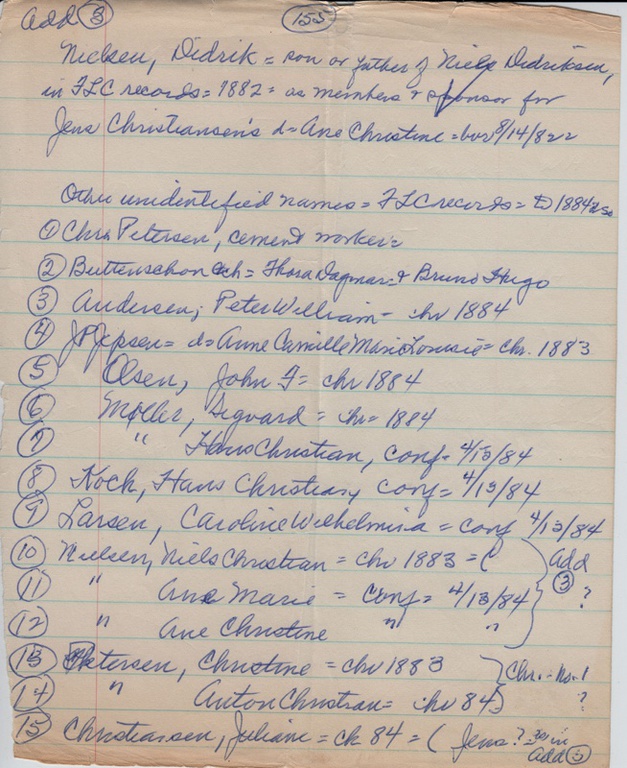 Add ③ 155
Nielsen, Didrik = son or father of Niels Didriksen,
in FLC records = 1882 = as members & sponsor for
Jens Christiansen's d = Ane Christine = bor 8/14/82
Other unidentified names = FLC records = to 1884
① Chr. Petersen, cement worker =
② Buttenschon ch = Thora Dagmar & Bruno Hugo
③ Andersen, Peter William - chr 1884
④ Jepsen = d = Anne Camille Marie Lousie = chr. 1883
⑤ Olsen, John F = chr 1884
⑥ Møller, Sigvard = chr = 1884
⑦ " Hans Christian, conf = 4/13/84
⑧ Koch, Hans Christian, conf = 4/13/84
⑨ Larsen, Caroline Wilhelmina = conf 4/13/84
⑩ Nielsen, Niels Christian = chr 1883 = ( Add
⑪ " Ane Marie = conf = 4/13/84 ③ ?
⑫ " Ane Christine " "
⑬ Petersen, Christine = chr 1883 Chr. - No. 1
⑭ " Anton Christian = chr 84 ?
⑮ Christiansen, Juliane = ch 84 = ( Jens? = in
Add ③